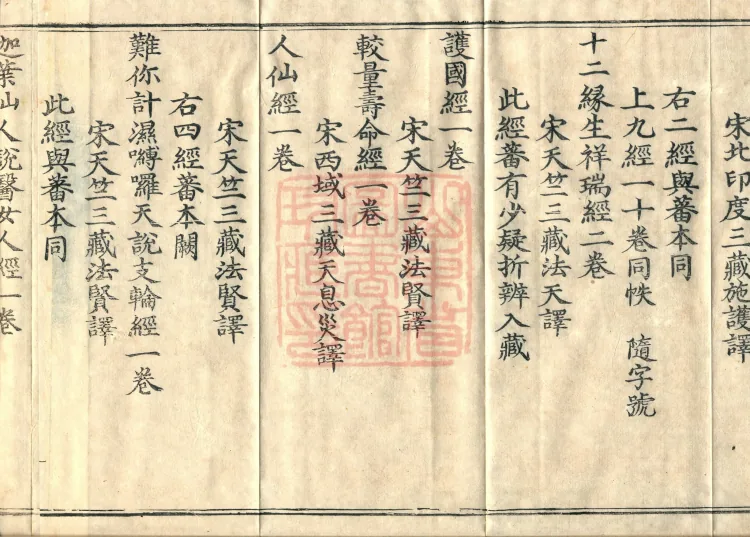 宋北印度三藏施護譯
右二經與蕃本同
上九經一十卷同帙　隨字號
十二緣生祥瑞經二卷
宋天竺三藏法天譯
此經蕃有少疑折辨入藏
護國經一卷
宋天竺三藏法賢譯
較量壽命經一卷
宋西域三藏天息災譯
人仙經一卷
宋天竺三藏法賢譯
右四經蕃本闕
難你計濕嚩囉天說支輪經一卷
宋天竺三藏法賢譯
此經與蕃本同
迦葉山人說醫女人經一卷
山東省
圖書館
珍藏印